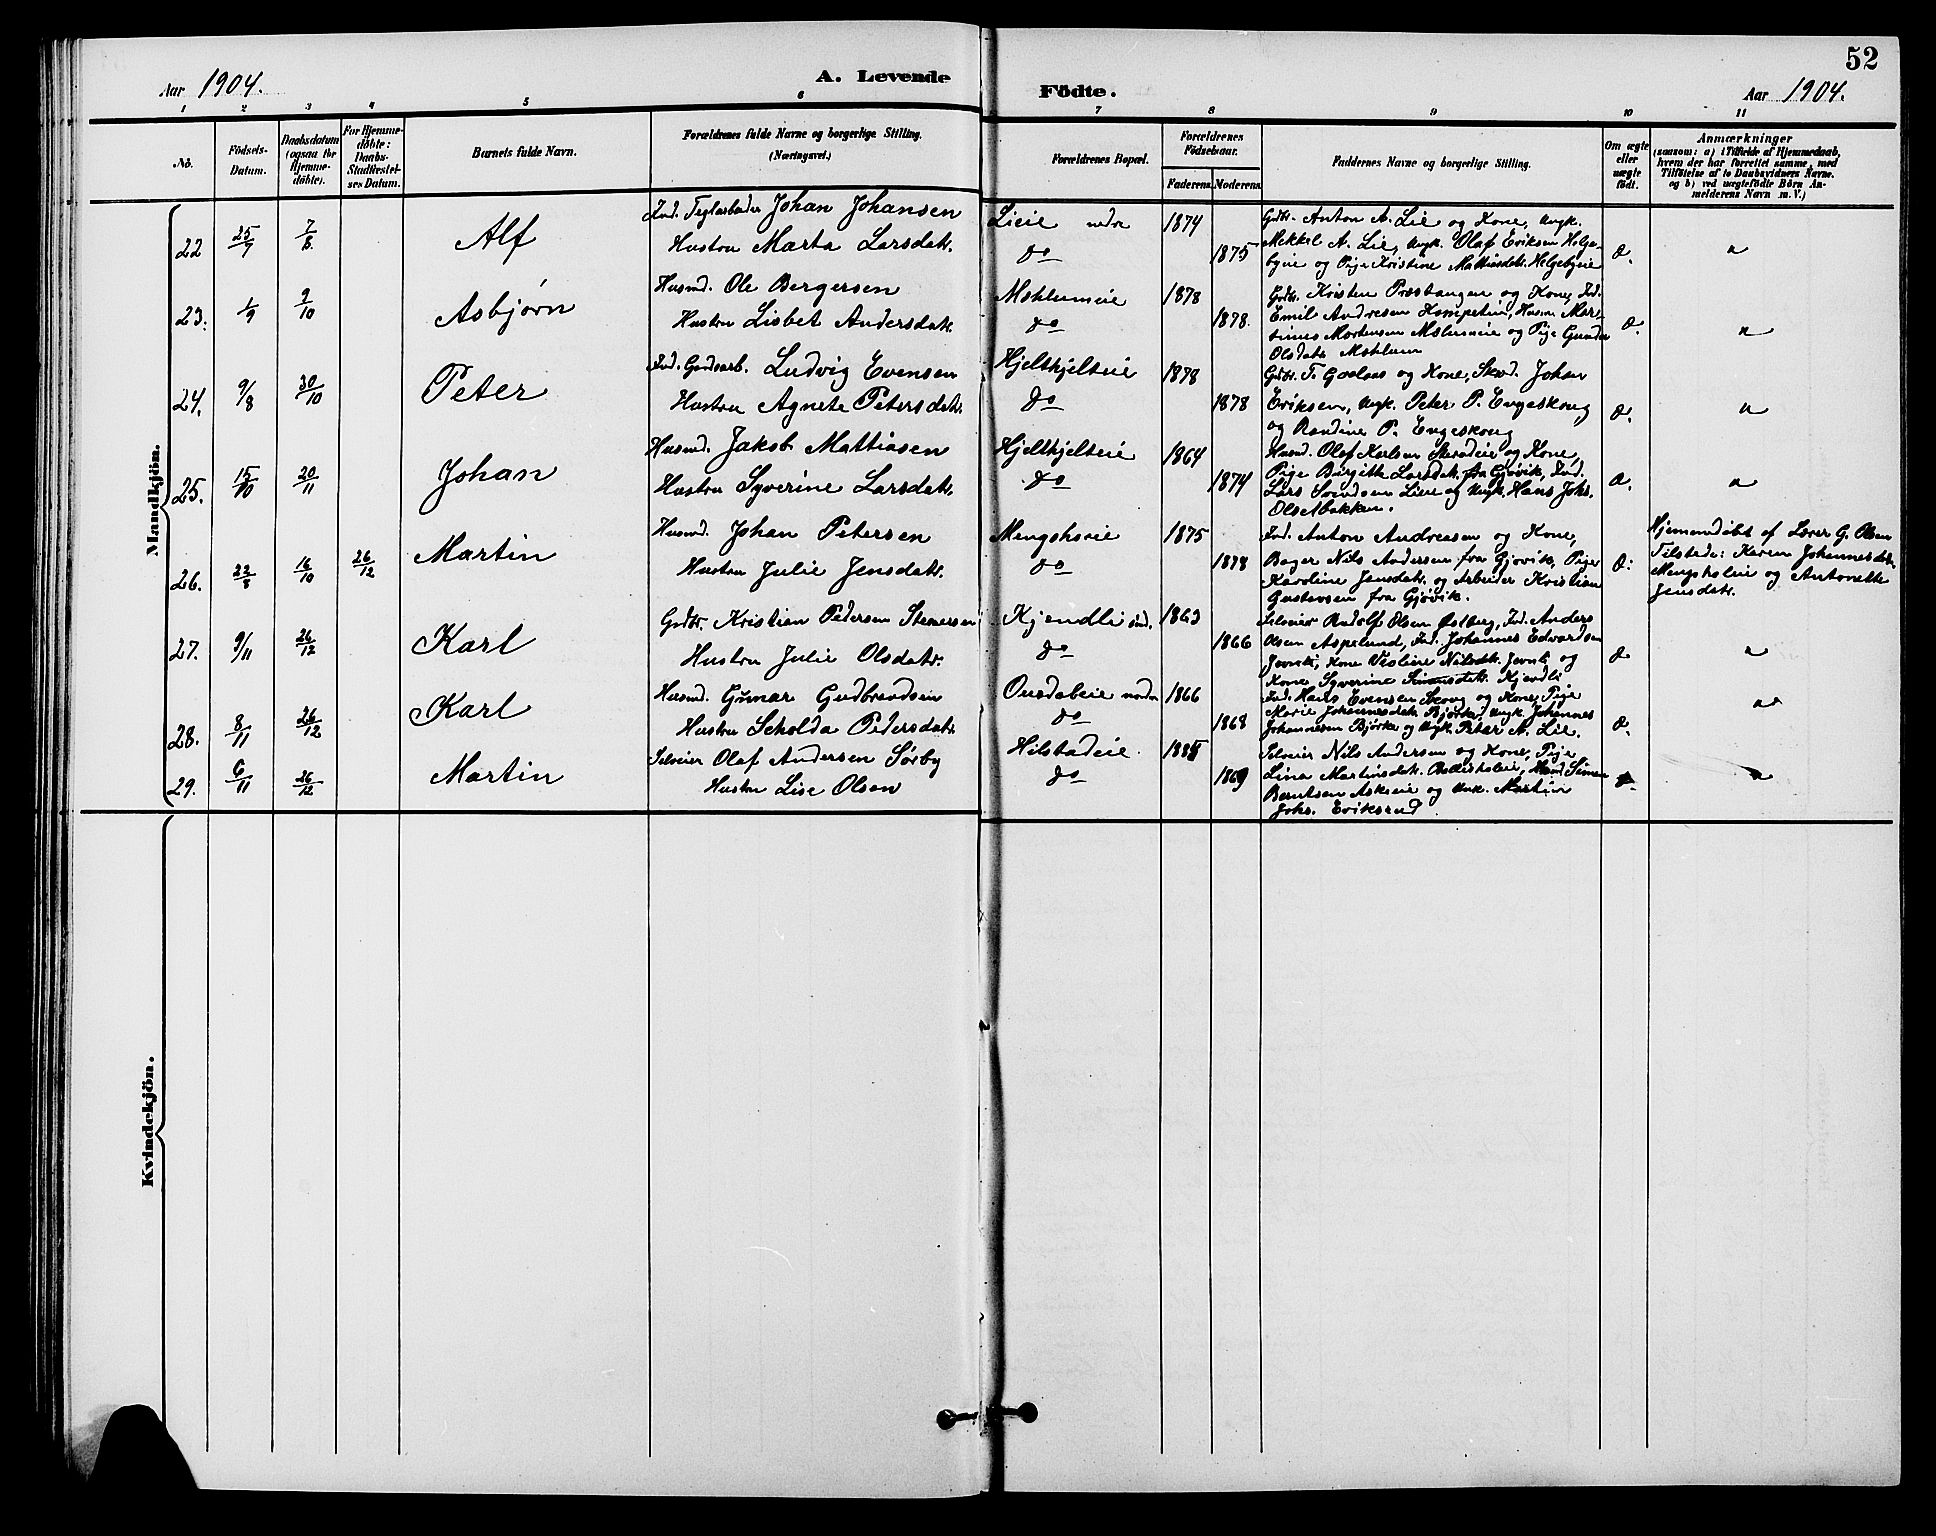 52
Aar 1904.
A. Levende
Födte.
Aar 1904.
1 2 3 4 5 6 7 8 9 10 11
No.
Födsels-
Datum.
Daabsdatum
(ogsaa for
Hjemme-
döbte).
For Hjemme-
döbte:
Daabs-
Stadfæstel-
ses Datum.
Barnets fulde Navn.
Forældrenes fulde Navne og borgerlige Stilling.
(Næringsvei.)
Forældrenes Bopæl.
Forældrenes
Födselsaar.
Faderens. Moderens.
Faddernes Navne og borgerlige Stilling.
Om ægte
eller
uægte
født.
Anmærkninger
(saasom: a) i Tilfælde af Hjemmedaab,
hvem der har forrettet samme, med
Tilföielse af to Daabsvidners Navne.
og b) ved uægtefödte Börn An-
melderens Navn m. V.)
Mandkjön.
22 25/7 7/8 Alf
Ind. Teglarbeider Johan Johansen
Hustru Marta Larsdatr.
Lieie nedre 1874
do 1875
Gdbr. Anton A. Lie og Kone, Ungk.
Mekkel A. Lie, Ungk. Olaf Eriksen Helge-
byeie og Pige Kristine Mattiasdatr. Helgebyeie
Æ. "
23. 1/9 9/10 Asbjørn
Husmd. Ole Bergersen
Hustru Lisbet Andersdatr.
Mæhlumeie 1878
do 1878.
Gdbr. Kristen Præstangen og Kone, Ind.
Emil Andresen, Husm. Mar-
tinus Mortensen Mælumeie og Pige
Olsdatr. Mæhlum
Æ. "
24. 9/8 30/10 Peter
Ind. Gaardsarb. Ludvig Evensen
Hustru Agnete Petersdatr.
Hjelthjelteie 1878
do 1878
Gdbr. T. Gaalaas og Kone, Johan
Eriksen, Ungk. Peter P. Engeskoug
og Randine P. Engeskoug
Æ. "
25. 15/10 20/11 Johan
Husmd. Jakob Mattiasen
Hustru Syverine Larsdatr.
Hjelthjelteie 1864
do 1874
Husmd. Olaf Karlsen og Kone,
Pige Birgitte Larsdatr. fra Gjøvik, Ind.
Lars Svendsen Lieie og Ungk. Hans Johs.
Olsetbakken.
Æ. "
26. 22/8 16/10 26/12 Martin
Husmd. Johan Petersen
Hustru Julie Jensdatr.
Mengsholeie 1875
do 1878
Ind. Anton Andreasen og Kone,
Bager Nils Andersen fra Gjøvik, Pige
Karoline Jensdatr. og Arbeider Kristian
Gustavsen fra Gjøvik.
Æ.
Hjemmedøbt af Lærer G. Olsen
Tilstede: Karen Johannesdatr.
Mengsholeie og Antonette
Jensdatr.
27. 9/11 26/12 Karl
Gdbr. Kristian Pedersen Stenersen
Hustru Julie Olsdatr.
Kjendli 1863
do 1866
Selveier Rudolf Olsen Østberg, Ind. Anders
Olsen Aspelund, Ind. Johannes Edvardsen
Jevnli, Kone Nilsdatr. Jevnli og
Kone Syverine Simensdatr. Kjendli
Æ "
28. 8/11 26/12 Karl
Husmd. Gunnar Gudbrandsen
Hustru Scholda Pedersdatr.
nordre 1866
do 1868
Ind. Hans Evensen Skoug og Kone, Pige
Marie Johannesdatr. Bjørke, Ungk. Johannes
Johannesen Bjørke og Ungk. Peter A. Lie.
Æ. "
29. 6/11 26/12 Martin
Selveier Olaf Andersen Sørby
Hustru Lise Olsen
Hilstadeie.
do 1869
Selveier Nils Andersen og Kone, Pige
Lina Martinsdatr., Simen
Berntsen Askeie og Ungk. Martin
Johs. Eriksrud.
Æ. "
Kvindekjön.